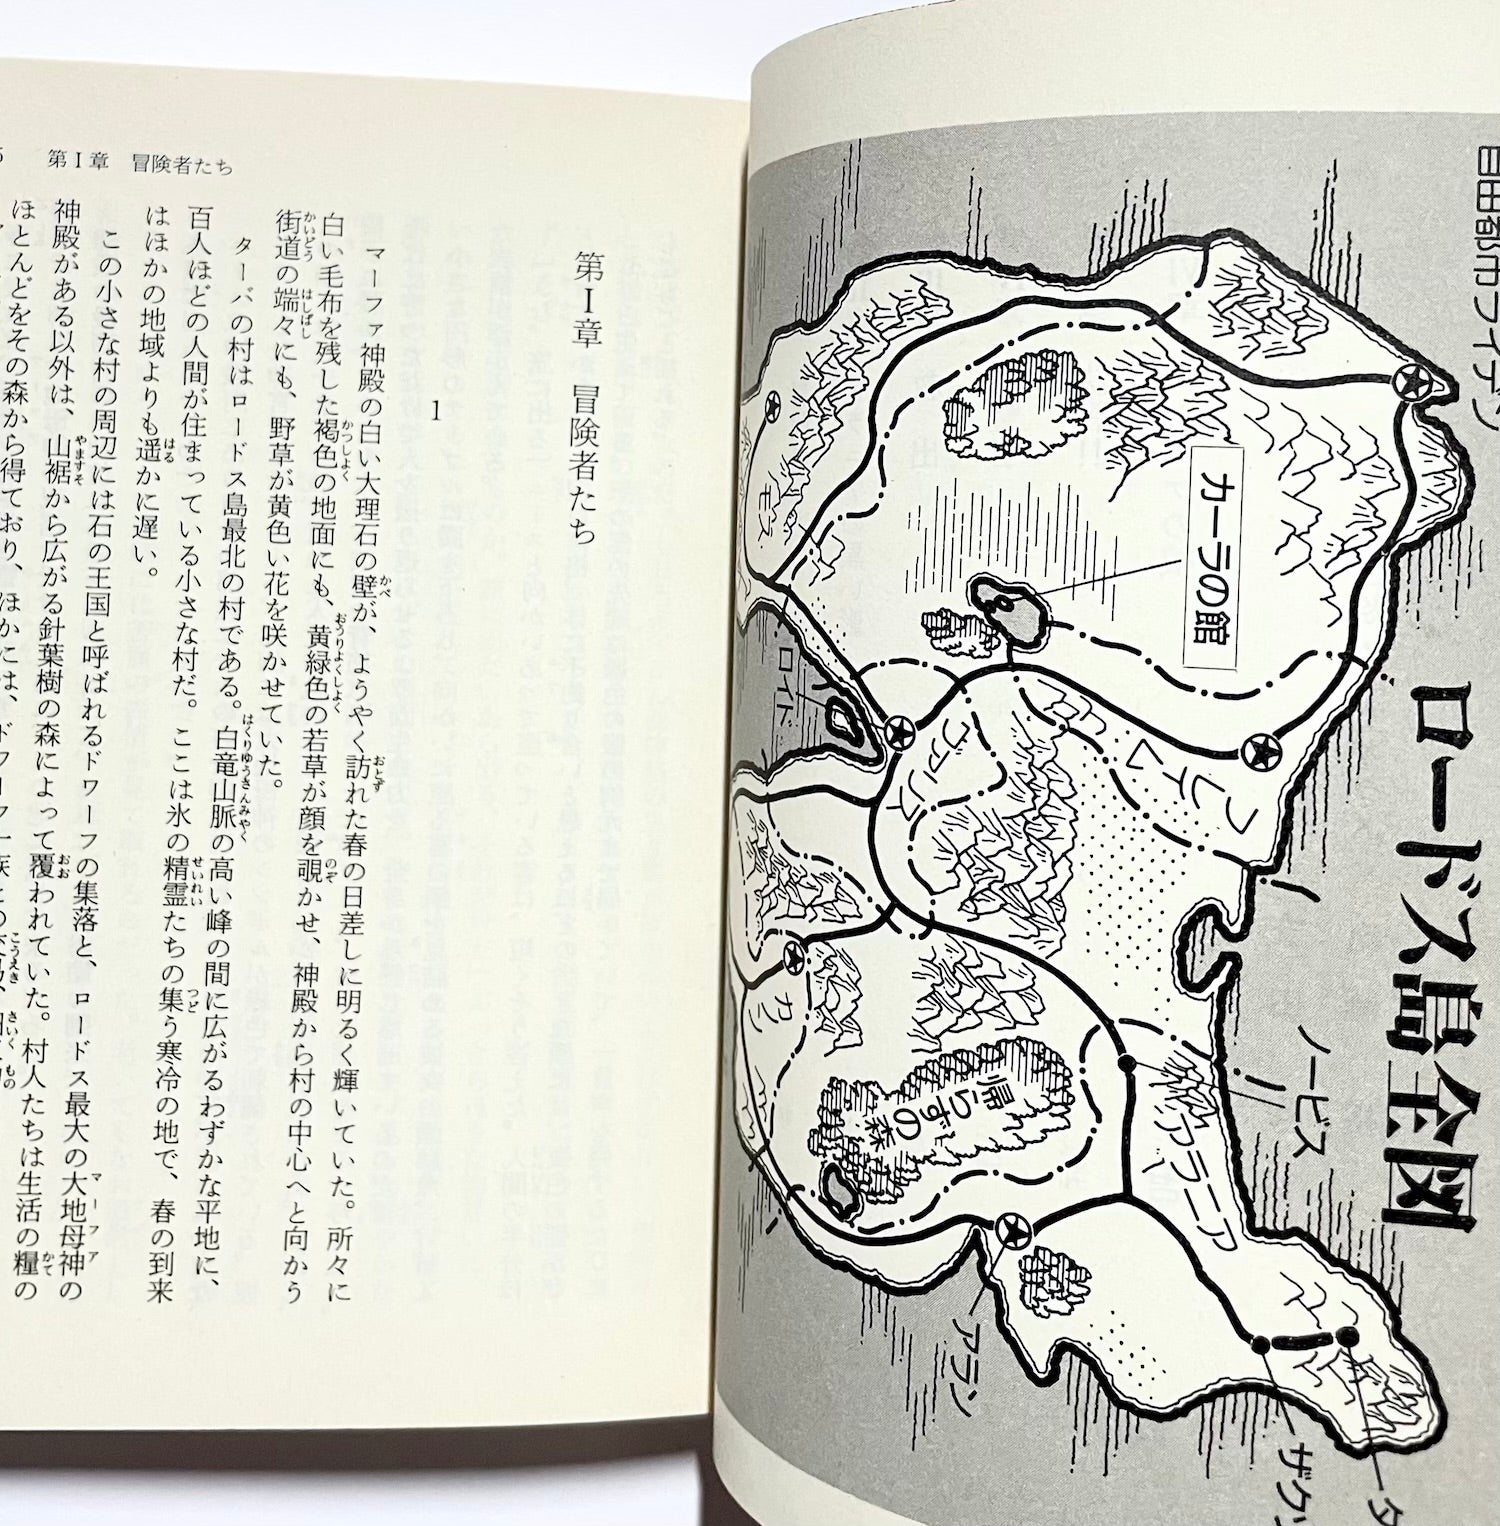 自由都市ライデン
ロードス島全図
カーラの館
モス
ロイド
ヴァリス
フレイム
ノービス
カノン
帰らずの森
アラニア
アラン
ザクソン
第Ⅰ章　冒険者たち
第Ⅰ章　冒険者たち
1
マーファ神殿の白い大理石の壁が、ようやく訪れた春の日差しに明るく輝いていた。所々に
白い毛布を残した褐色の地面にも、黄緑色の若草が顔を覗かせ、神殿から村の中心へと向かう
街道の端々にも、野草が黄色い花を咲かせていた。
ターバの村はロードス島最北の村である。白竜山脈の高い峰の間に広がるわずかな平地に、
百人ほどの人間が住まっている小さな村だ。ここは氷の精霊たちの集う寒冷の地で、春の到来
はほかの地域よりも遥かに遅い。
この小さな村の周辺には石の王国と呼ばれるドワーフの集落と、ロードス最大の大地母神の
神殿がある以外は、山裾から広がる針葉樹の森によって覆われていた。村人たちは生活の糧の
ほとんどをその森から得ており、ほかには、ドワーフ